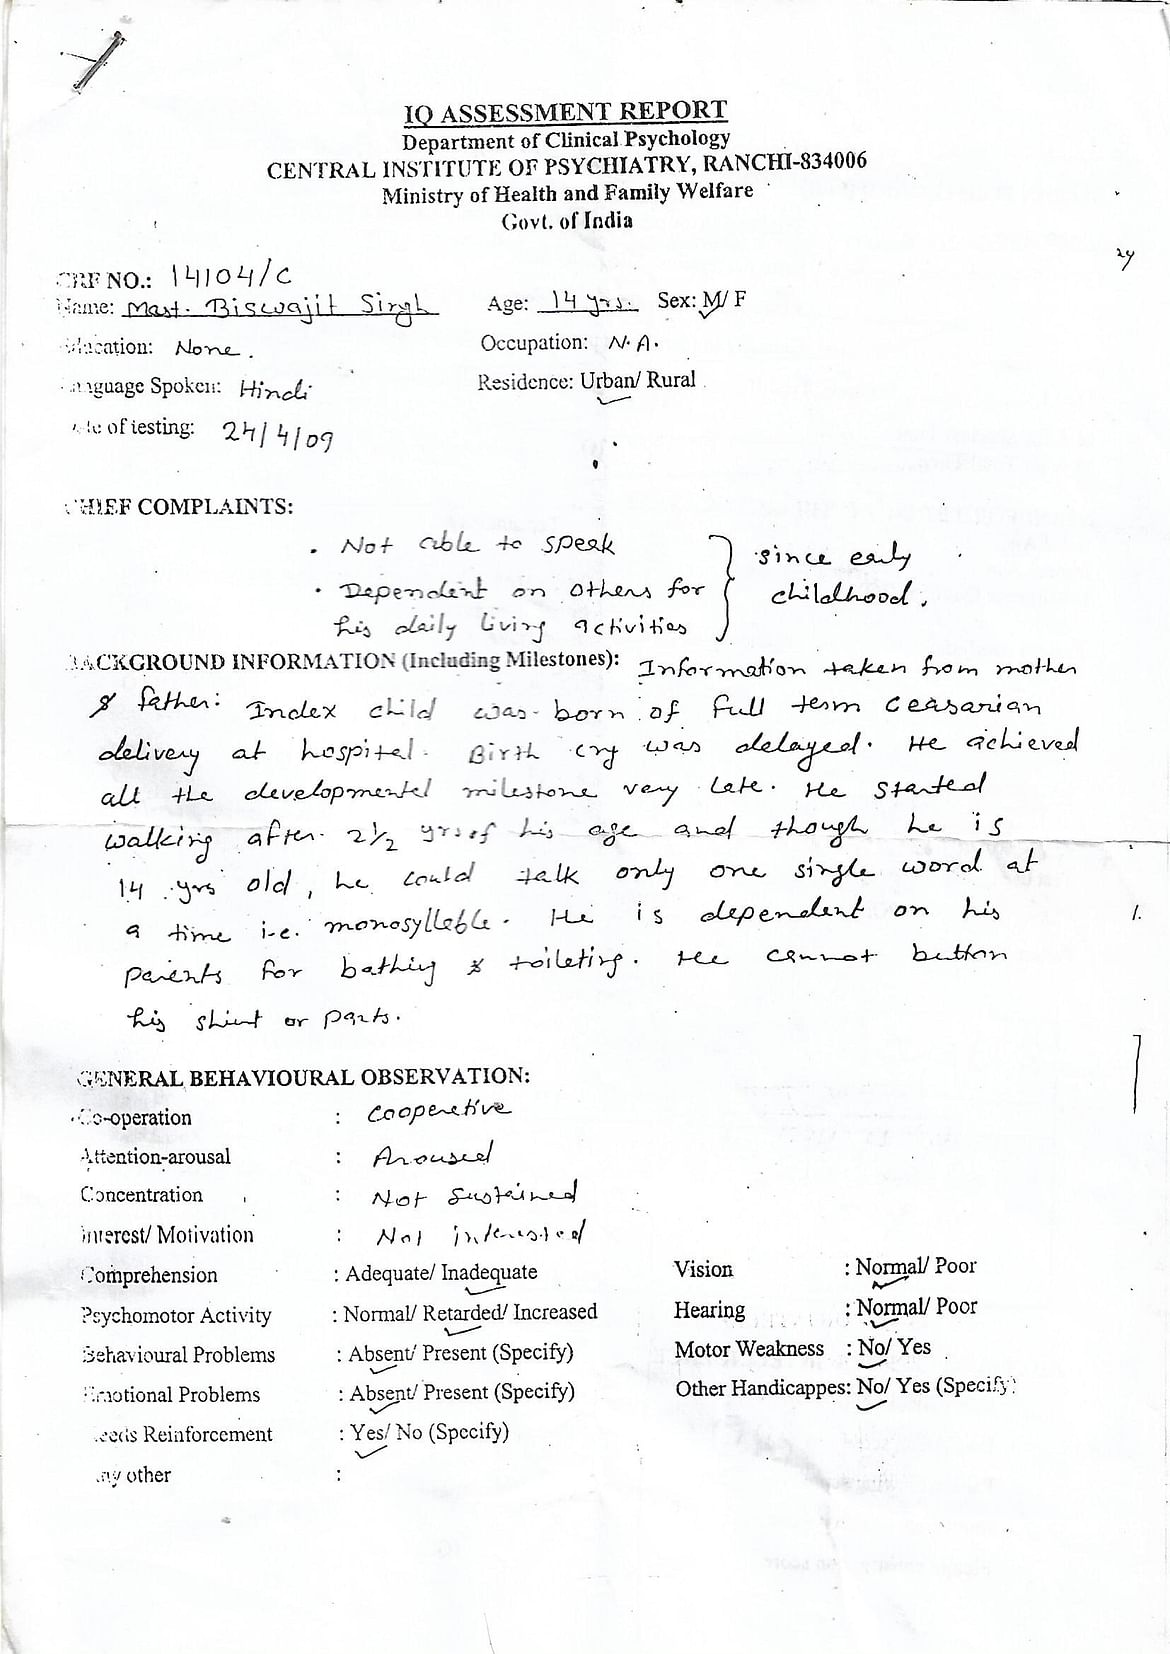 IQ ASSESSMENT REPORT
Department of Clinical Psychology
CENTRAL INSTITUTE OF PSYCHIATRY, RANCHI-834006
Ministry of Health and Family Welfare
Govt. of India
24
CRF NO.: 14104/C
Name: Mast. Biswajit Singh Age: 14 yrs. Sex: M/ F
Education: None. Occupation: N.A.
Language Spoken: Hindi Residence: Urban/ Rural
Date of testing: 24/4/09
CHIEF COMPLAINTS:
• Not able to speak
• Dependent on others for his daily living activities } since early childhood.
BACKGROUND INFORMATION (Including Milestones): Information taken from mother
& father: Index child was born of full term Ceasarian
delivery at hospital. Birth cry was delayed. He achieved
all the developmental milestone very late. He started
walking after 2½ yrs of his age and though he is
14 yrs old, he could talk only one single word at
a time i.e. monosylleble. He is dependent on his
parents for bathing & toileting. He cannot button
his shirt or pants.
GENERAL BEHAVIOURAL OBSERVATION:
Co-operation : Cooperative
Attention-arousal : Aroused
Concentration : Not Sustained
Interest/ Motivation : Not interested
Comprehension : Adequate/ Inadequate Vision : Normal/ Poor
Psychomotor Activity : Normal/ Retarded/ Increased Hearing : Normal/ Poor
Behavioural Problems : Absent/ Present (Specify) Motor Weakness : No/ Yes
Emotional Problems : Absent/ Present (Specify) Other Handicappes: No/ Yes (Specify)
Needs Reinforcement : Yes/ No (Specify)
Any other :